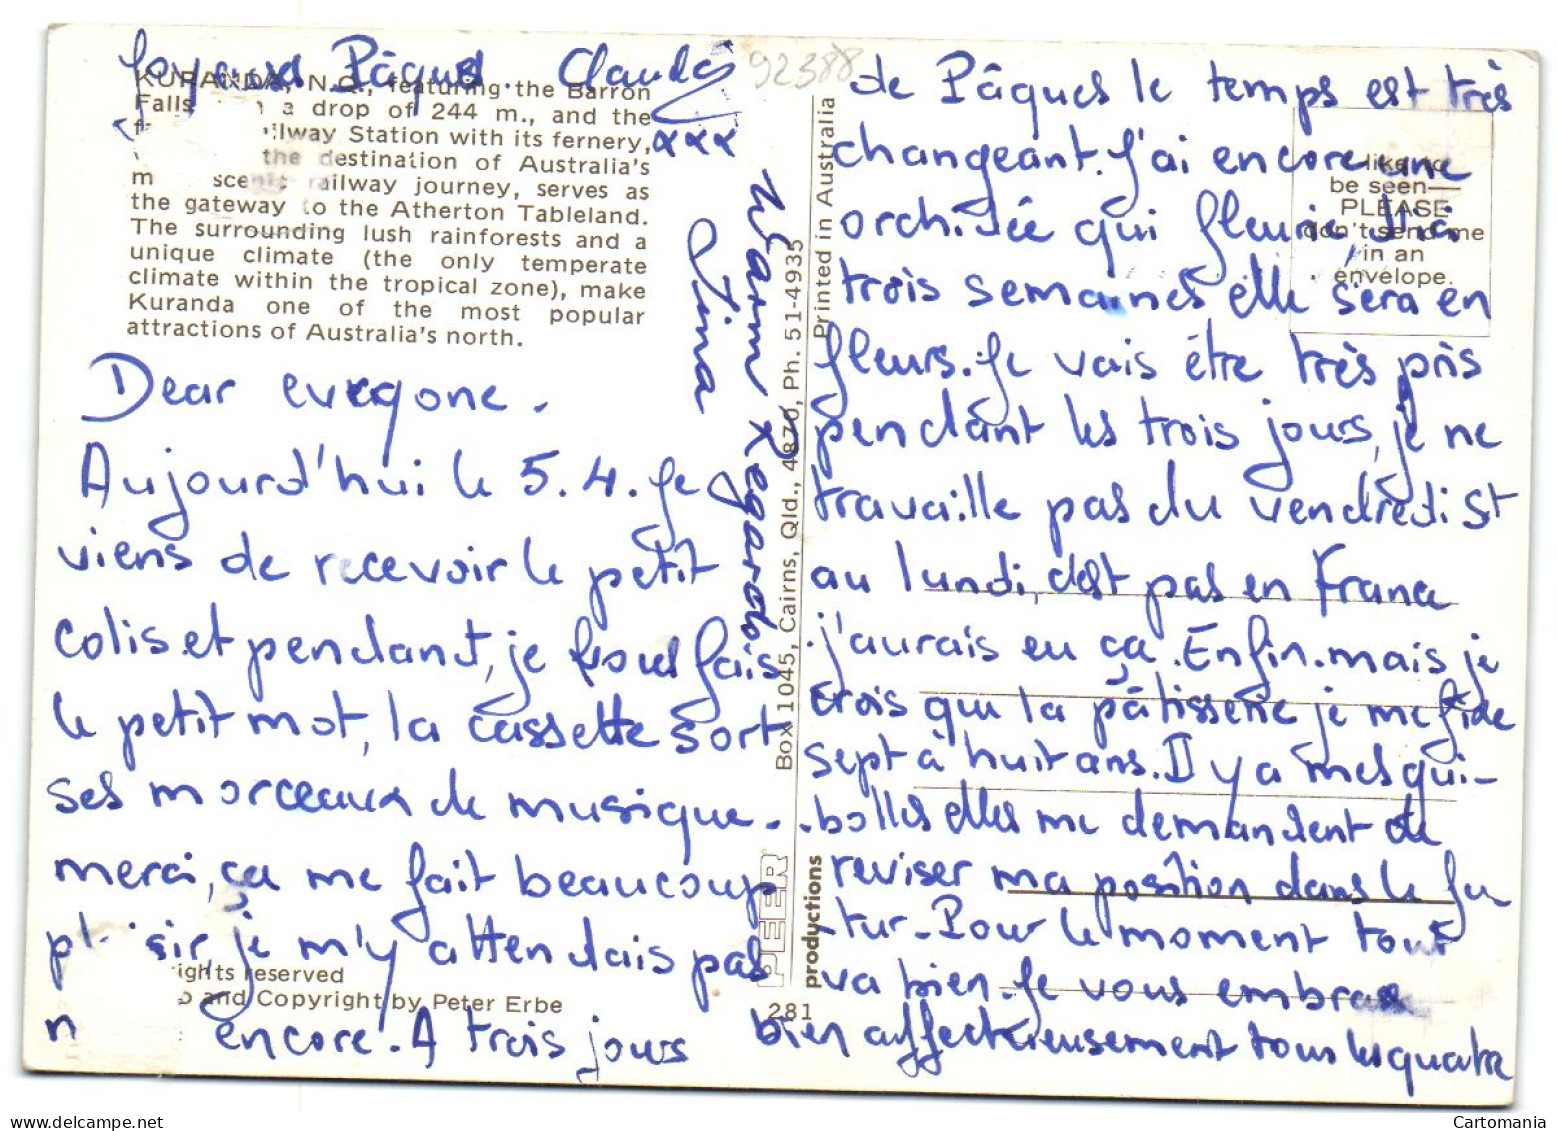 Joyeuses Pâques. Claude
xxx
92388
KURANDA, N.Q., featuring the Barron
Falls a drop of 244 m., and the
railway Station with its fernery,
the destination of Australia's
scenic railway journey, serves as
the gateway to the Atherton Tableland.
The surrounding lush rainforests and a
unique climate (the only temperate
climate within the tropical zone), make
Kuranda one of the most popular
attractions of Australia's north.
Warm Regards
Dear everyone.
Aujourd'hui le 5.4. Je
viens de recevoir le petit
colis et pendant, je vous fais
le petit mot, la cassette sort
ses morceaux de musique..
merci, ça me fait beaucoup
plaisir, je m'y attendais pas
encore. A trois jours
rights reserved
and Copyright by Peter Erbe
Box 1045, Cairns, Qld., 4870, Ph. 51-4935
Printed in Australia
PEER
productions
281
I like to
be seen—
PLEASE
don't send me
in an
envelope.
de Pâques le temps est très
changeant. J'ai encore une
orchidée qui fleurie, d'ici
trois semaines elle sera en
fleurs. Je vais être très pris
pendant les trois jours, je ne
travaille pas du vendredi St
au lundi, c'est pas en France
j'aurais eu ça. Enfin. mais je
crois que la pâtisserie je me fide
sept à huit ans. Il y a mes qui-
bolles elles me demandent de
reviser ma position dans le fu
-tur. Pour le moment tout
va bien. Je vous embrasse
bien affectueusement tous les quatre